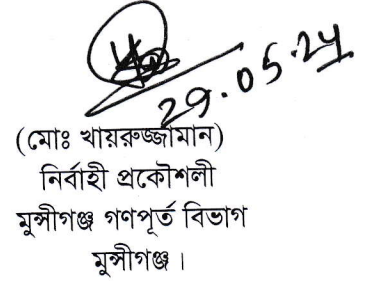 29.05.24
(মোঃ খায়রুজ্জামান)
নির্বাহী প্রকৌশলী
মুন্সীগঞ্জ গণপূর্ত বিভাগ
মুন্সীগঞ্জ।